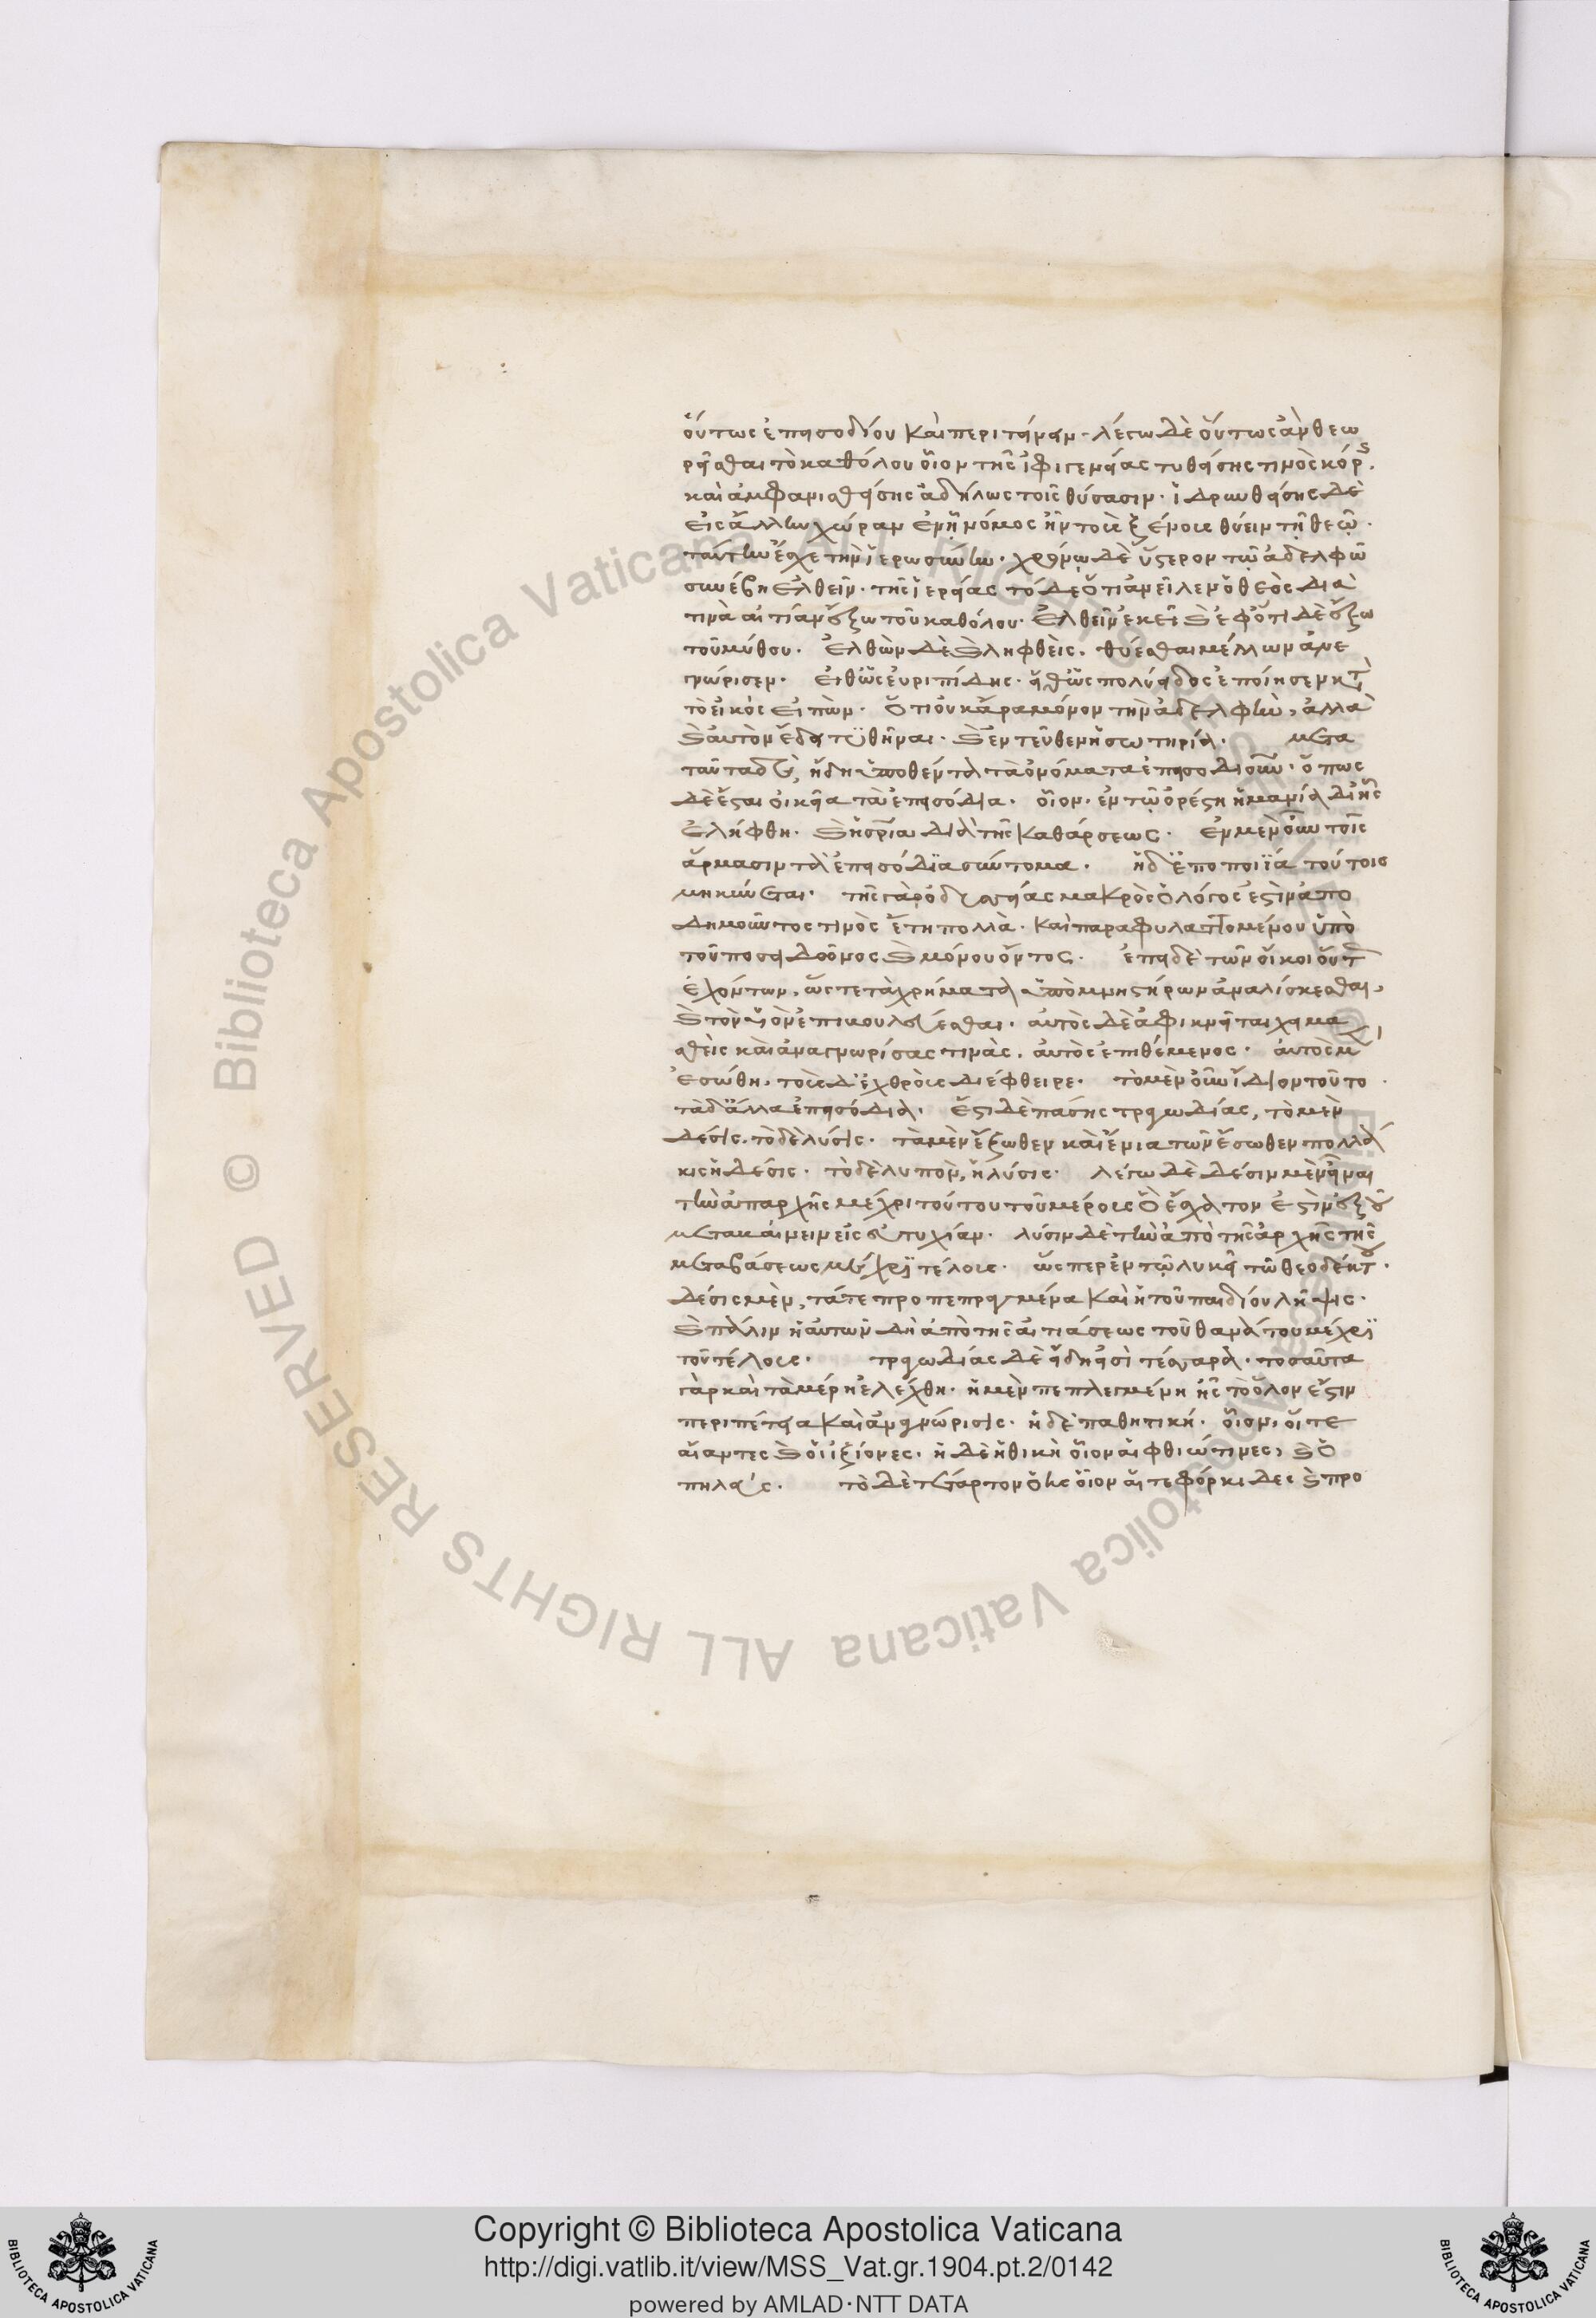 οὕτως ἐπεισοδίου καὶ περιτείνειν· λέγω δὲ οὕτως ἂν θεω
ρεῖσθαι τὸ καθόλου οἷον τῆς ἰφιγενείας τυθείσης τινὸς κόρς.
καὶ ἀφανισθείσης ἀδήλως τοῖς θύσασιν· ἱδρυνθείσης δὲ
εἰς ἄλλην χώραν ἐν ᾗ νόμος ἦν τοὺς ξένους θύειν τῇ θεῷ·
ταύτην ἔσχε τὴν ἱερωσύνην· χρόνῳ δὲ ὕστερον τῷ ἀδελφῷ
συνέβη ἐλθεῖν· τῆς ἱερείας τὸ δὲ ὅτι ἀνεῖλεν ὁ θεὸς διὰ
τινὰ αἰτίαν ἔξω τοῦ καθόλου· ἐλθεῖν ἐκεῖ καὶ ἐφ' ὅτι δὲ ἔξω
τοῦ μύθου· ἐλθὼν δὲ καὶ ληφθεὶς· θύεσθαι μέλλων ἀνε
γνώρισεν· εἴθ' ὡς εὐριπίδης· εἴθ' ὡς πολύειδος ἐποίησεν κατὰ
τὸ εἰκὸς εἰπών· ὅτι οὐκ ἄρα μόνον τὴν ἀδελφὴν, ἀλλὰ
καὶ αὐτὸν ἔδει τυθῆναι· καὶ ἐντεῦθεν ἡ σωτηρία· μετα
ταῦτα δὲ, ἤδη ὑποθέντα τὰ ὀνόματα ἐπεισοδιοῦν· ὅπως
δὲ ἔσται οἰκεῖα τὰ ἐπεισόδια· οἷον· ἐν τῷ ὀρέστη ἡ μανία δι' ἧς
ἐλήφθη· καὶ ἡ σρία διὰ τῆς καθάρσεως· ἐν μὲν οὖν τοῖς
ἅρμασιν τὰ ἐπεισόδια σύντομα· ἡ δ' ἐποποιΐα τούτοις
μηκύνεται· τῆς γὰρ ὀδυσσείας μακρὸς ὁ λόγος ἐστὶν ἀπο
δημοῦντος τινὸς ἔτη πολλὰ· καὶ παραφυλαττομένου ὑπὸ
τοῦ ποσειδῶνος καὶ μόνου ὄντος· ἐπεὶ δὲ τῶν οἴκοι οὕτως
ἐχόντων, ὥστε τὰ χρήματα ὑπὸ μνηστήρων ἀναλίσκεσθαι,
καὶ τὸν υἱὸν ἐπιβουλεύεσθαι· αὐτὸς δὲ ἀφικνεῖται χειμα
σθεὶς καὶ ἀναγνωρίσας τινὰς, αὐτὸς ἐπιθέμενος· αὐτὸς μὲν
ἐσώθη, τοὺς δ' ἐχθροὺς διέφθειρε· τὸ μὲν οὖν ἴδιον τοῦτο
τὰ δ' ἄλλα ἐπεισόδια· ἔστι δὲ πάσης τραγωδίας, τὸ μὲν
δέσις, τὸ δὲ λύσις· τὰ μὲν ἔξωθεν καὶ ἔνια τῶν ἔσωθεν πολλά
κις ἡ δέσις· τὸ δὲ λυπὸν, ἡ λύσις· λέγω δὲ δέσιν μὲν εἶναι
τὴν ἀπαρχῆς μέχρι τούτου τοῦ μέρους ὃ ἔσχατον ἐστὶν ἐξ οὗ
μεταβαίνειν εἰς εὐτυχίαν· λύσιν δὲ τὴν ἀπὸ τῆς ἀρχῆς τῆς
μεταβάσεως μέχρι τέλους· ὥσπερ ἐν τῷ λυγκεῖ τῷ θεοδέκτου·
δέσις μὲν, τά τε προπεπραγμένα καὶ ἡ τοῦ παιδίου λῆψις·
καὶ πάλιν ἡ αὐτῶν δὴ ἀπὸ τῆς αἰτιάσεως τοῦ θανάτου μέχρι
τοῦ τέλους· τραγωδίας δὲ εἴδη εἰσὶ τέσσαρα· τοσαῦτα
γὰρ καὶ τὰ μέρη ἐλέχθη· ἡ μὲν πεπλεγμένη ἧς τὸ ὅλον ἐστιν
περιπέτεια καὶ ἀναγνώρισις· ἡ δὲ παθητική· οἷον, οἵ τε
αἴαντες καὶ οἱ ἰξίονες· ἡ δὲ ἠθικὴ οἷον αἱ φθιώτιδες, καὶ ὁ
πηλεύς· τὸ δὲ τέταρτον ὅης οἷον αἵ τε φόρκιδες καὶ προ
Copyright © Biblioteca Apostolica Vaticana
http://digi.vatlib.it/view/MSS_Vat.gr.1904.pt.2/0142
powered by AMLAD·NTT DATA
BIBLIOTECA APOSTOLICA VATICANA
BIBLIOTECA APOSTOLICA VATICANA
© Biblioteca Apostolica Vaticana ALL RIGHTS RESERVED